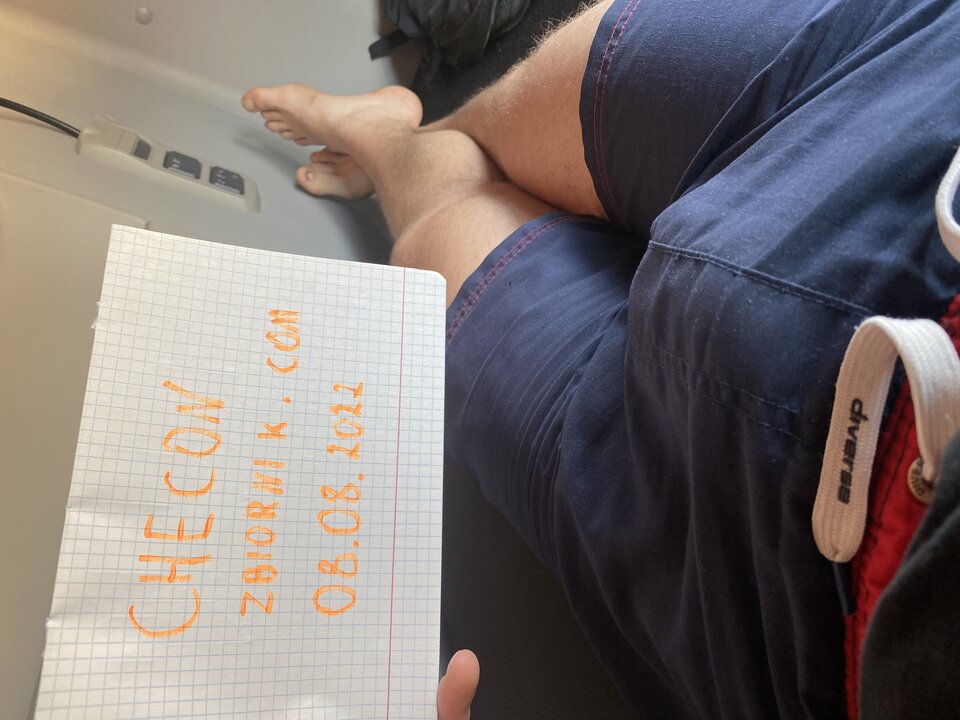 CHECON
ZBIORNIK.COM
08.08.2022
diverse